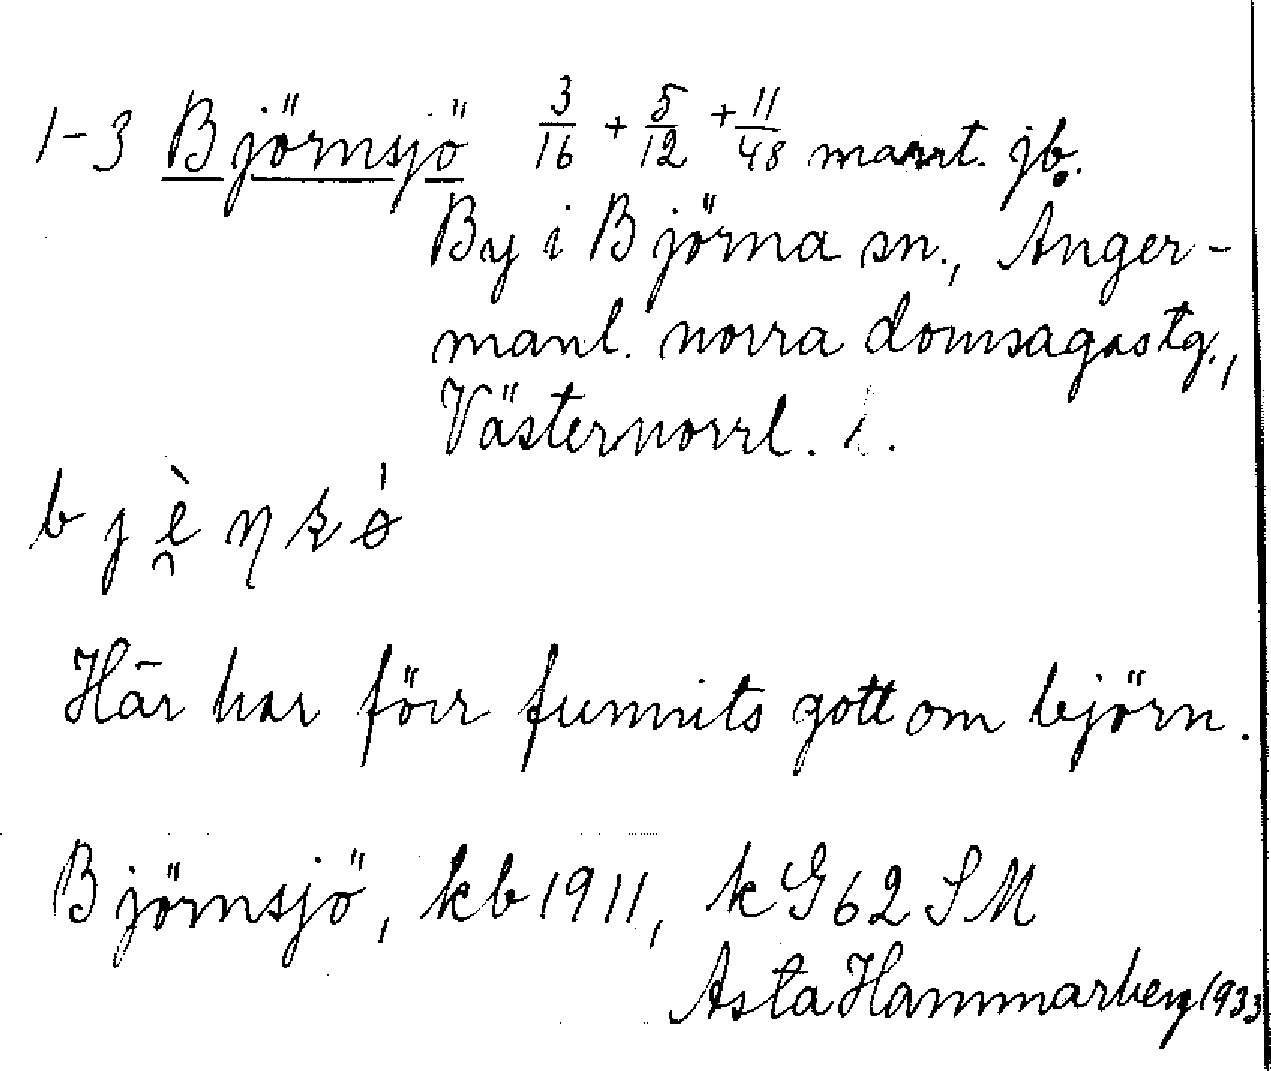 1-3 Björnsjö 3/16 + 5/12 + 11/48 mant. jb.
By i Björna sn., Ånger-
manl. norra domsagas tg.,
Västernorrl. l.
Här har förr funnits gott om björn.
Björnsjö, kb 1911, k G 62 SM
Asta Hammarberg 1933